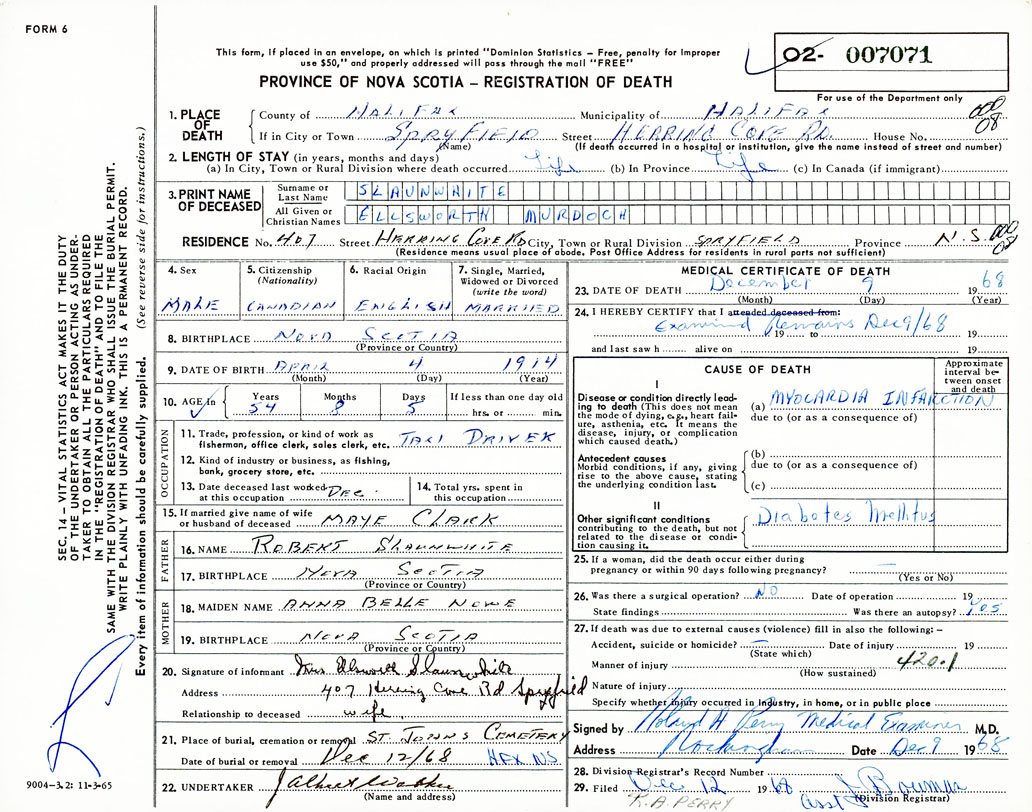 FORM 6
This form, if placed in an envelope, on which is printed "Dominion Statistics – Free, penalty for improper
use $50," and properly addressed will pass through the mail "FREE"
PROVINCE OF NOVA SCOTIA – REGISTRATION OF DEATH
02- 007071
For use of the Department only
1. PLACE OF DEATH
County of HALIFAX Municipality of HALIFAX 000 08
If in City or Town SPRYFIELD Street HERRING COVE RD. House No.
(Name) (If death occurred in a hospital or institution, give the name instead of street and number)
2. LENGTH OF STAY (in years, months and days)
(a) In City, Town or Rural Division where death occurred Life (b) In Province Life (c) In Canada (if immigrant)
3. PRINT NAME OF DECEASED
Surname or Last Name SLAUNWHITE
All Given or Christian Names ELLSWORTH MURDOCH
RESIDENCE No. 407 Street HERRING COVE RD City, Town or Rural Division SPRYFIELD Province N.S. 000 08
(Residence means usual place of abode. Post Office Address for residents in rural parts not sufficient)
4. Sex
MALE
5. Citizenship
(Nationality)
CANADIAN
6. Racial Origin
ENGLISH
7. Single, Married,
Widowed or Divorced
(write the word)
MARRIED
8. BIRTHPLACE NOVA SCOTIA
(Province or Country)
9. DATE OF BIRTH APRIL 4 1914
(Month) (Day) (Year)
10. AGE in Years Months Days If less than one day old
54 8 5 hrs. or min.
OCCUPATION
11. Trade, profession, or kind of work as
fisherman, office clerk, sales clerk, etc. TAXI DRIVER
12. Kind of industry or business, as fishing,
bank, grocery store, etc.
13. Date deceased last worked
at this occupation DEC.
14. Total yrs. spent in
this occupation
15. If married give name of wife
or husband of deceased MAYE CLARK
FATHER
16. NAME ROBERT SLAUNWHITE
17. BIRTHPLACE NOVA SCOTIA
(Province or Country)
MOTHER
18. MAIDEN NAME ANNA BELLE NOWE
19. BIRTHPLACE NOVA SCOTIA
(Province or Country)
20. Signature of informant Mrs. Ellsworth Slaunwhite
Address 407 Herring Cove Rd Spryfield
Relationship to deceased wife
21. Place of burial, cremation or removal ST. JOHNS CEMETERY
Date of burial or removal Dec 12/68 HFX N.S.
22. UNDERTAKER
(Name and address)
MEDICAL CERTIFICATE OF DEATH
23. DATE OF DEATH December 9 1968
(Month) (Day) (Year)
24. I HEREBY CERTIFY that I attended deceased from:
Examined Remains Dec 9/68
19 to 19
and last saw h alive on 19
CAUSE OF DEATH
Approximate
interval be-
tween onset
and death
I
Disease or condition directly lead-
ing to death (This does not mean
the mode of dying, e.g., heart fail-
ure, asthenia, etc. It means the
disease, injury, or complication
which caused death.)
(a) MYOCARDIA INFARCTION
due to (or as a consequence of)
Antecedent causes
Morbid conditions, if any, giving
rise to the above cause, stating
the underlying condition last.
(b)
due to (or as a consequence of)
(c)
II
Other significant conditions
contributing to the death, but not
related to the disease or condi-
tion causing it.
Diabetes Mellitus
25. If a woman, did the death occur either during
pregnancy or within 90 days following pregnancy? —
(Yes or No)
26. Was there a surgical operation? NO Date of operation 19
State findings Was there an autopsy? Yes
27. If death was due to external causes (violence) fill in also the following: –
Accident, suicide or homicide? — Date of injury 19
(State which)
Manner of injury 420.1
(How sustained)
Nature of injury
Specify whether injury occurred in industry, in home, or in public place
Signed by Roland H Perry Medical Examiner M.D.
Address Rockingham Date Dec 9 1968
28. Division Registrar's Record Number
29. Filed Dec 12 1968 J. Bowman
R. A. PERRY asst (Division Registrar)
SEC. 14 – VITAL STATISTICS ACT MAKES IT THE DUTY
OF THE UNDERTAKER OR PERSON ACTING AS UNDER-
TAKER TO OBTAIN ALL THE PARTICULARS REQUIRED
IN THE "REGISTRATION OF DEATH" AND TO FILE THE
SAME WITH THE DIVISION REGISTRAR WHO SHALL ISSUE THE BURIAL PERMIT.
WRITE PLAINLY WITH UNFADING INK. THIS IS A PERMANENT RECORD.
Every item of information should be carefully supplied. (See reverse side for instructions.)
9004-3.2: 11-3-65